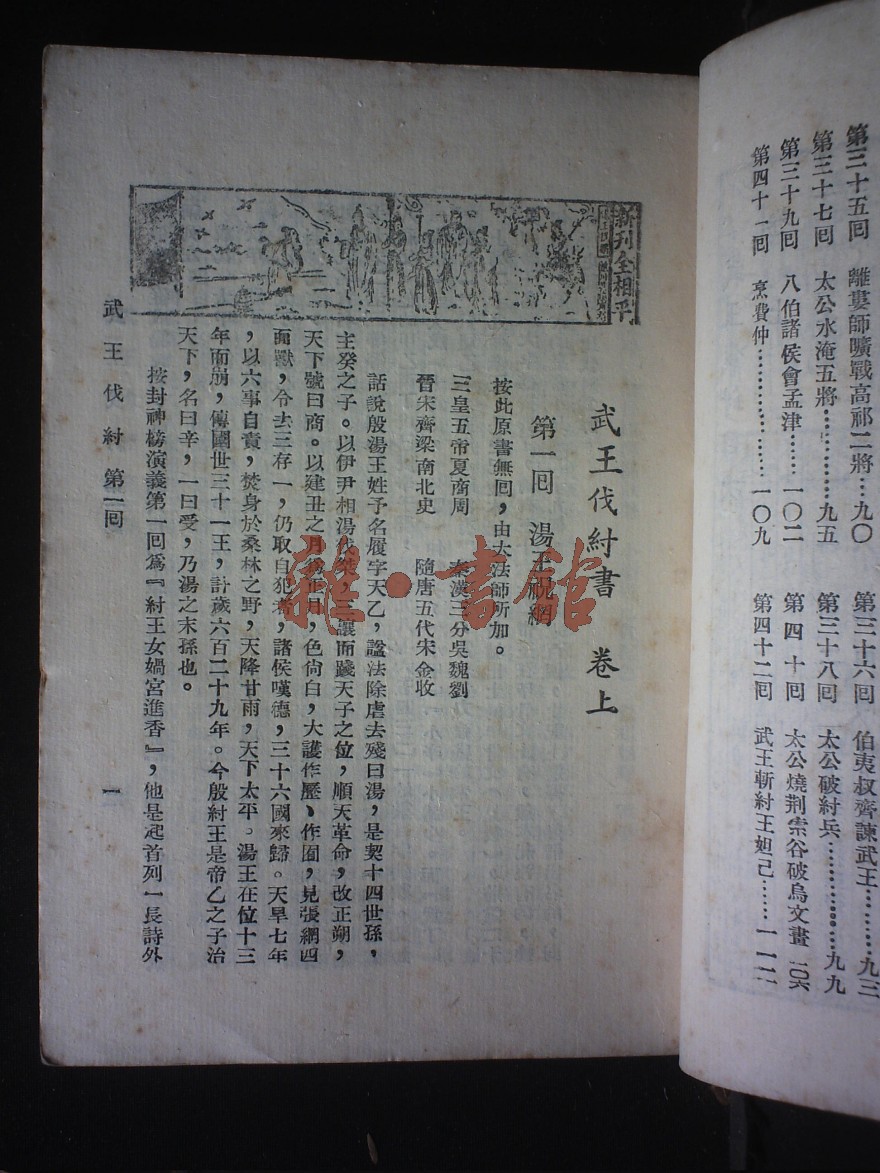 第三十五回 離婁師曠戰高祁二將…九〇
第三十六回 伯夷叔齊諫武王………九三
第三十七回 太公水淹五將…………九五
第三十八回 太公破紂兵……………九九
第三十九回 八伯諸侯會孟津………一〇二
第四十回 太公燒荆索谷破烏文畫 一〇六
第四十一回 烹費仲…………………一〇九
第四十二回 武王斬紂王妲己………一一二
新刊全相平
武王伐紂書 卷上
第一回 湯王祝網
按此原書無回,由大法師所加。
三皇五帝夏商周 秦漢三分吳魏劉
晉宋齊梁南北史 隨唐五代宋金收
話說殷湯王姓子名履字天乙,謚法除虐去殘曰湯,是契十四世孫,
主癸之子。以伊尹相湯伐桀,三讓而踐天子之位,順天革命,改正朔,
天下號曰商。以建丑之月為正月,色尙白,大護作歷、作囿,見張網四
面獸,令去三存一,仍取自犯者,諸侯嘆德,三十六國來歸。天旱七年
,以六事自責,焚身於桑林之野,天降甘雨,天下太平。湯王在位十三
年而崩,傳國世三十一王,計歲六百二十九年。今殷紂王是帝乙之子治
天下,名曰辛,一曰受,乃湯之末孫也。
按封神榜演義第一回爲『紂王女媧宮進香』,他是起首列一長詩外
武王伐紂 第一回
一
雜·書館